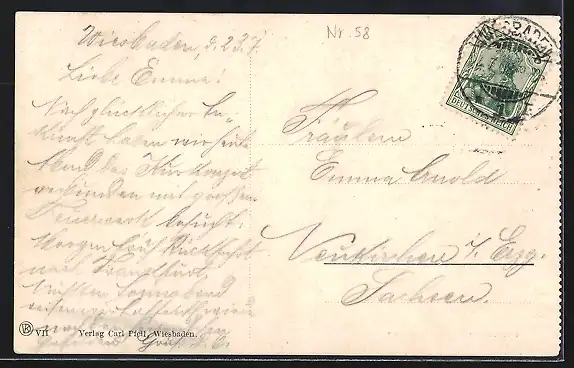 Nr. 58
Wiesbaden, d. 23.7.
Liebe Emma!
Nach glücklicher An-
kunft haben wir heute
Abend das Kurkonzert
verbunden mit großem
Feuerwerk besucht.
Morgen früh Rückfahrt
nach Frankfurt,
Sonnabend
Gruß
Fräulein
Emma Arnold
Neukirchen i/ Erzg.
Sachsen.
DEUTSCHES REICH
WIESBADEN
VII Verlag Carl Pfeil, Wiesbaden.